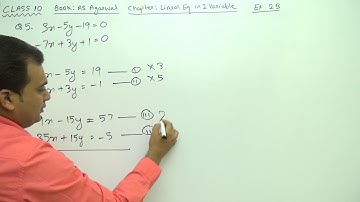 CLASS 10 Book: RS Aggarwal Chapter: Linear Eq in 2 Variable Ex 3B
Q5. 3x-5y-19=0
-7x+3y+1=0
x-5y = 19 — ① ×3
x+3y = -1 — ⑪ ×5
x-15y = 57 — ⑪⑪
35x+15y = -5 —